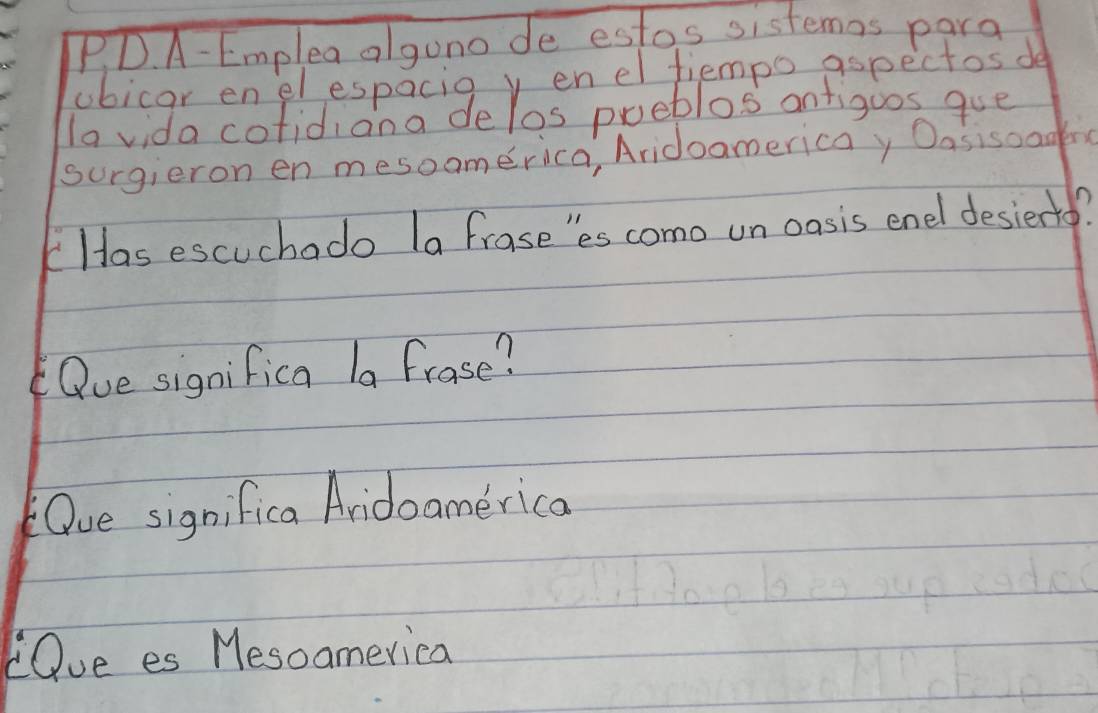 P.D.A-Emplea alguno de estos sistemas para
ubicar en el espacio y en el tiempo aspectos de
la vida cotidiana de los pueblos antiguos que
surgieron en mesoamérica, Aridoamerica y
¿Has escuchado la frase "es como un oasis enel desierto?
¿Que significa la frase?
¿Que significa Aridoamérica
¿Que es Mesoamerica